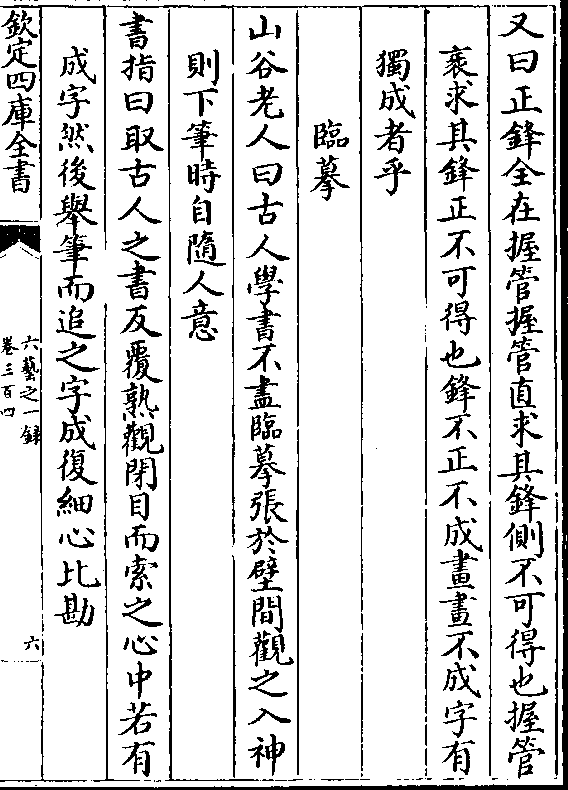 又曰正鋒全在握管握管直求其鋒側不可得也握管
衺求其鋒正不可得也鋒不正不成畫畫不成字有
獨成者乎
臨摹
山谷老人曰古人學書不盡臨摹張於壁間觀之入神
則下筆時自隨人意
書指曰取古人之書反覆熟觀閉目而索之心中若有
成字然後舉筆而追之字成復細心比勘
欽定四庫全書
六藝之一錄
卷三百四
六